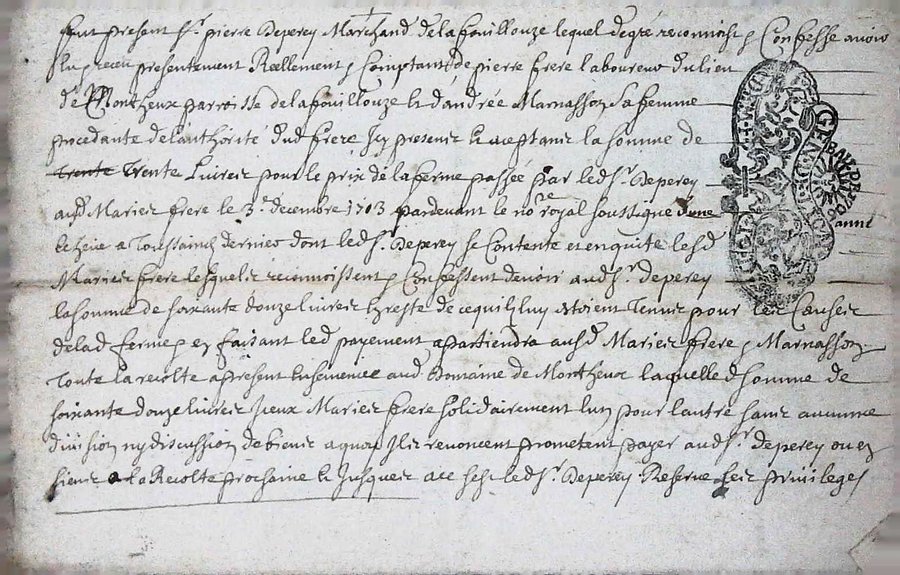 fut present Sr. pierre Deperey Marchand de lafouillouze lequel degre reconnoist & Confesse avoir
presentement Reellement & Comptant de pierre frere laboureur du lieu
de Montheux parroisse delafouillouze & dandrée Marnasson sa femme
procedante de lauthorité dud frere Icy presens & aceptans la somme de
Trente Livres pour le prix de la ferme passée par led Sr. Deperey
ausd Mariés frere le 3e. decembre 1703 pardevant le nore royal soussigné dune anné
echeue a Toussainct dernier dont led Sr. Deperey se Contente et en quite lesd
Mariés frere lesquels reconnoissent & Confessent devoir aud Sr. deperey
la somme de soixante douze livres reste de ce quils luy estoient Tenus pour les Causes
delad ferme & en faisant led payement apartiendra ausd Mariés frere & Marnasson
Toute la recolte apresent ensemencée aud Domaine de Montheux laquelle d somme de
soixante douze livres Iceux Mariés frere solidairement lun pour lautre sans aucunne
division ny discussion de biens a quoy Ils renoncent prometent payer aud Sr. deperey ou es
siens a la Recolte prochaine & Jusques a ce led Sr. Deperey Reserve ses privileges
GENERALITE